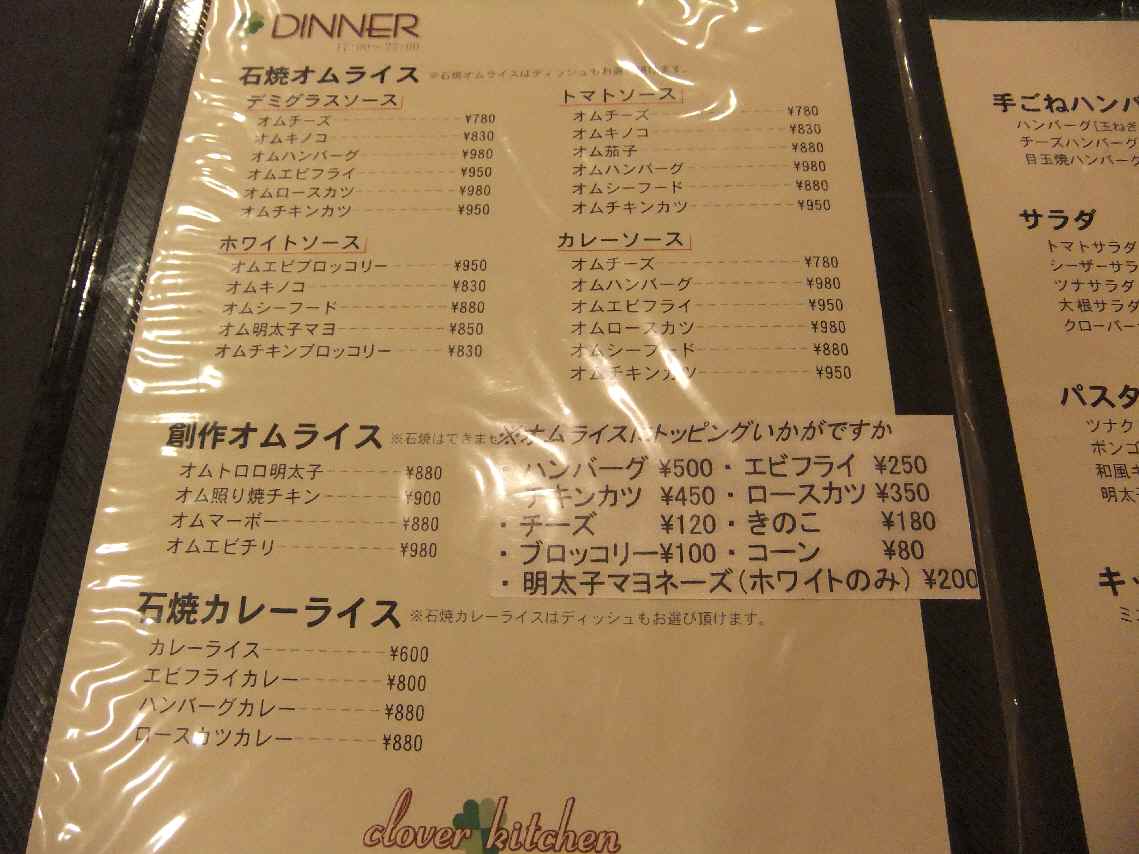 DINNER
17:00～22:00
石焼オムライス ※石焼オムライスはディッシュもお選び頂けます。
デミグラスソース
オムチーズ ¥780
オムキノコ ¥830
オムハンバーグ ¥980
オムエビフライ ¥950
オムロースカツ ¥980
オムチキンカツ ¥950
トマトソース
オムチーズ ¥780
オムキノコ ¥830
オム茄子 ¥880
オムハンバーグ ¥980
オムシーフード ¥880
オムチキンカツ ¥950
ホワイトソース
オムエビブロッコリー ¥950
オムキノコ ¥830
オムシーフード ¥880
オム明太子マヨ ¥850
オムチキンブロッコリー ¥830
カレーソース
オムチーズ ¥780
オムハンバーグ ¥980
オムエビフライ ¥950
オムロースカツ ¥980
オムシーフード ¥880
オムチキンカツ ¥950
創作オムライス ※石焼はできませ
オムトロロ明太子 ¥880
オム照り焼チキン ¥900
オムマーボー ¥880
オムエビチリ ¥980
※オムライスにトッピングいかがですか
・ハンバーグ ¥500・エビフライ ¥250
チキンカツ ¥450・ロースカツ ¥350
・チーズ ¥120・きのこ ¥180
・ブロッコリー¥100・コーン ¥80
・明太子マヨネーズ(ホワイトのみ) ¥200
石焼カレーライス ※石焼カレーライスはディッシュもお選び頂けます。
カレーライス ¥600
エビフライカレー ¥800
ハンバーグカレー ¥880
ロースカツカレー ¥880
clover kitchen
手ごねハンバ
ハンバーグ[玉ねぎ
チーズハンバーグ
目玉焼ハンバーグ
サラダ
トマトサラダ
シーザーサラ
ツナサラダ
大根サラダ
クローバー
パスタ
ツナク
ボンゴ
和風キ
明太
キッ
ミ